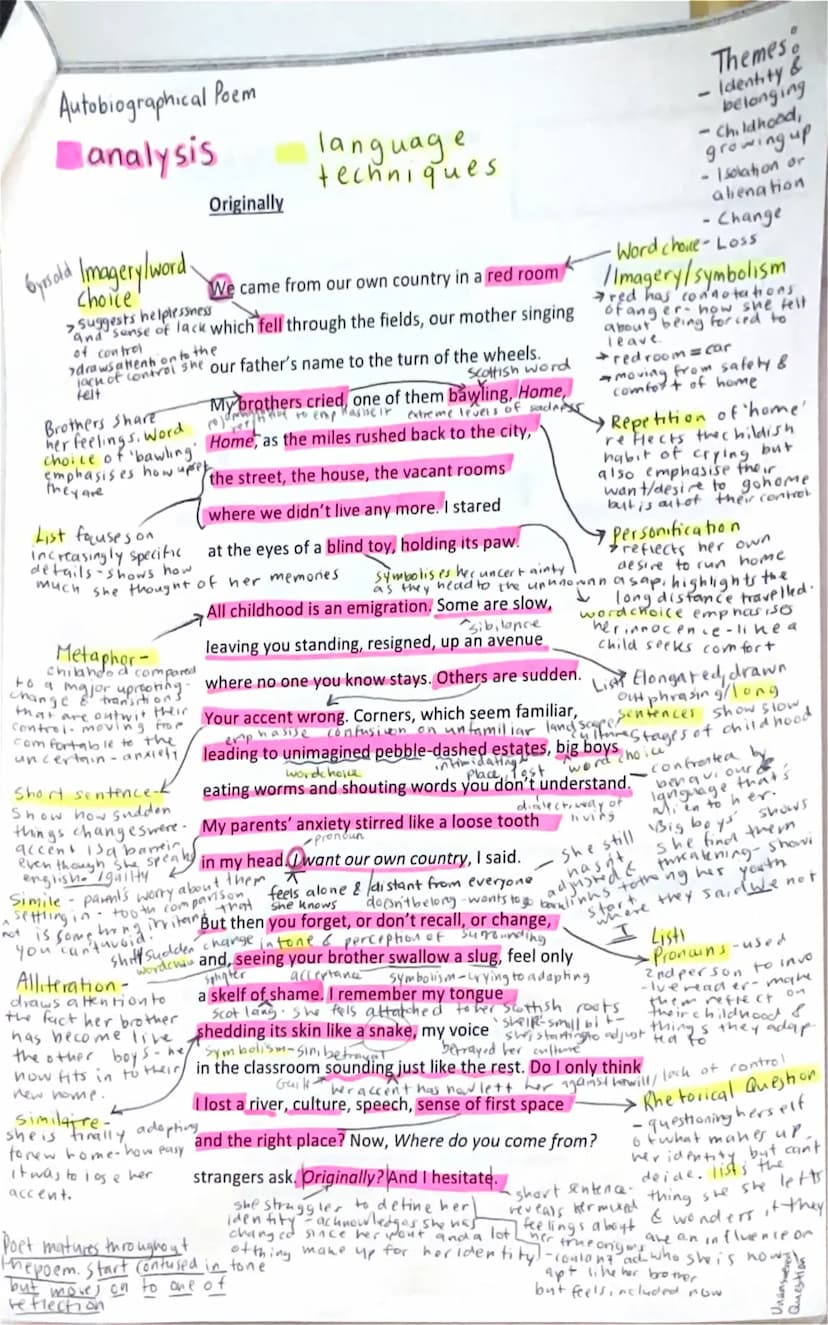 Autobiographical Poem
analysis
language
techniques
Themes:
- Identity &
belonging
- Childhood,
growing up
- Isolation or
alienation
- Change
- Loss
Originally
6yrs old
Imagery/word
choice
> suggests helplessness
and sense of lack
of control
> draws attention to the
lack of control she
felt
Word choice
/Imagery/symbolism
→ red has connotations
of anger - how she felt
about being forced to
leave.
→ red room = car
→ moving from safety &
comfort of home
We came from our own country in a red room
which fell through the fields, our mother singing
our father's name to the turn of the wheels.
Scottish word
My brothers cried, one of them bawling, Home,
extreme levels of sadness
Home, as the miles rushed back to the city,
the street, the house, the vacant rooms
where we didn't live any more. I stared
at the eyes of a blind toy, holding its paw.
Brothers share
her feelings. Word
choice of 'bawling'
emphasises how upset
they are
List focuses on
increasingly specific
details - shows how
much she thought of her memories
Repetition of 'home'
reflects the childish
habit of crying but
also emphasise their
want/desire to go home
but is out of their control
Personification
→ reflects her own
desire to run home
asap, highlights the
long distance travelled.
symbolises her uncertainty
as they head to the unknown
word choice emphasises
her innocence - like a
child seeks comfort
All childhood is an emigration. Some are slow,
sibilance
leaving you standing, resigned, up an avenue
where no one you know stays. Others are sudden.
Your accent wrong. Corners, which seem familiar,
emphasise confusion on unfamiliar landscape/
culture
leading to unimagined pebble-dashed estates, big boys
word choice
intimidating
place, lost
word choice
eating worms and shouting words you don't understand.
dialect, way of
living
My parents' anxiety stirred like a loose tooth
pronoun
in my head. I want our own country, I said.
feels alone & distant from everyone
she knows
doesn't belong - wants to go back
Metaphor -
childhood compared
to a major uprooting -
change & transitions
that are outwit their
control - moving from
comfortable to the
uncertain - anxiety
Short sentence -
show how sudden
things changes were.
accent is a barrier
even though she speaks
english / guilty
Simile - parent's worry about them
settling in - tooth comparison
is something irritating that
you can't avoid.
List Elongated, drawn
out phrasing/long
sentences show slow
stages of childhood
confronted by
behaviour &
language that's
alien to her.
'Big boys' shows
she find them
threatening - showi
ng her youth
she still
hasn't
adjusted &
links to
start
where they said We not
I
But then you forget, or don't recall, or change,
shift sudden change in tone & perception of surrounding
and, seeing your brother swallow a slug, feel only
splinter
acceptance
symbolism - trying to adapting
a skelf of shame. I remember my tongue
Scot lang - she feels attatched to her Scottish roots
'skelf' - small bit -
she's starting to adjust
shedding its skin like a snake, my voice
symbolism - sin betrayal
betrayed her culture
in the classroom sounding just like the rest. Do I only think
Guilt
her accent has now left her against her will / lack of control
I lost a river, culture, speech, sense of first space
and the right place? Now, Where do you come from?
strangers ask. Originally? And I hesitate.
Alliteration -
word choice
draws attention to
the fact her brother
has become like
the other boys - he
now fits in to their
new home.
she is finally adapting
to new home - how easy
it was to lose her
accent.
List
Pronouns - used
2nd person to invo
lve reader - make
them reflect on
their childhood &
things they adap
ted to
Rhetorical Question
- questioning herself
of what makes up
her identity but can't
decide. lists the
thing she she lefts
& wonders if they
are an influence on
who she is now
Unanswered
Question
she struggles to define her
identity - acknowledges she has
changed since her youth and a lot
of thing make up for her identity
short sentence -
reveals her mixed
feelings about
her true origins
- couldn't ad
apt like her brother
but feels included now
Poet matures throughout
the poem. Start confused in tone
but moves on to one of
reflection